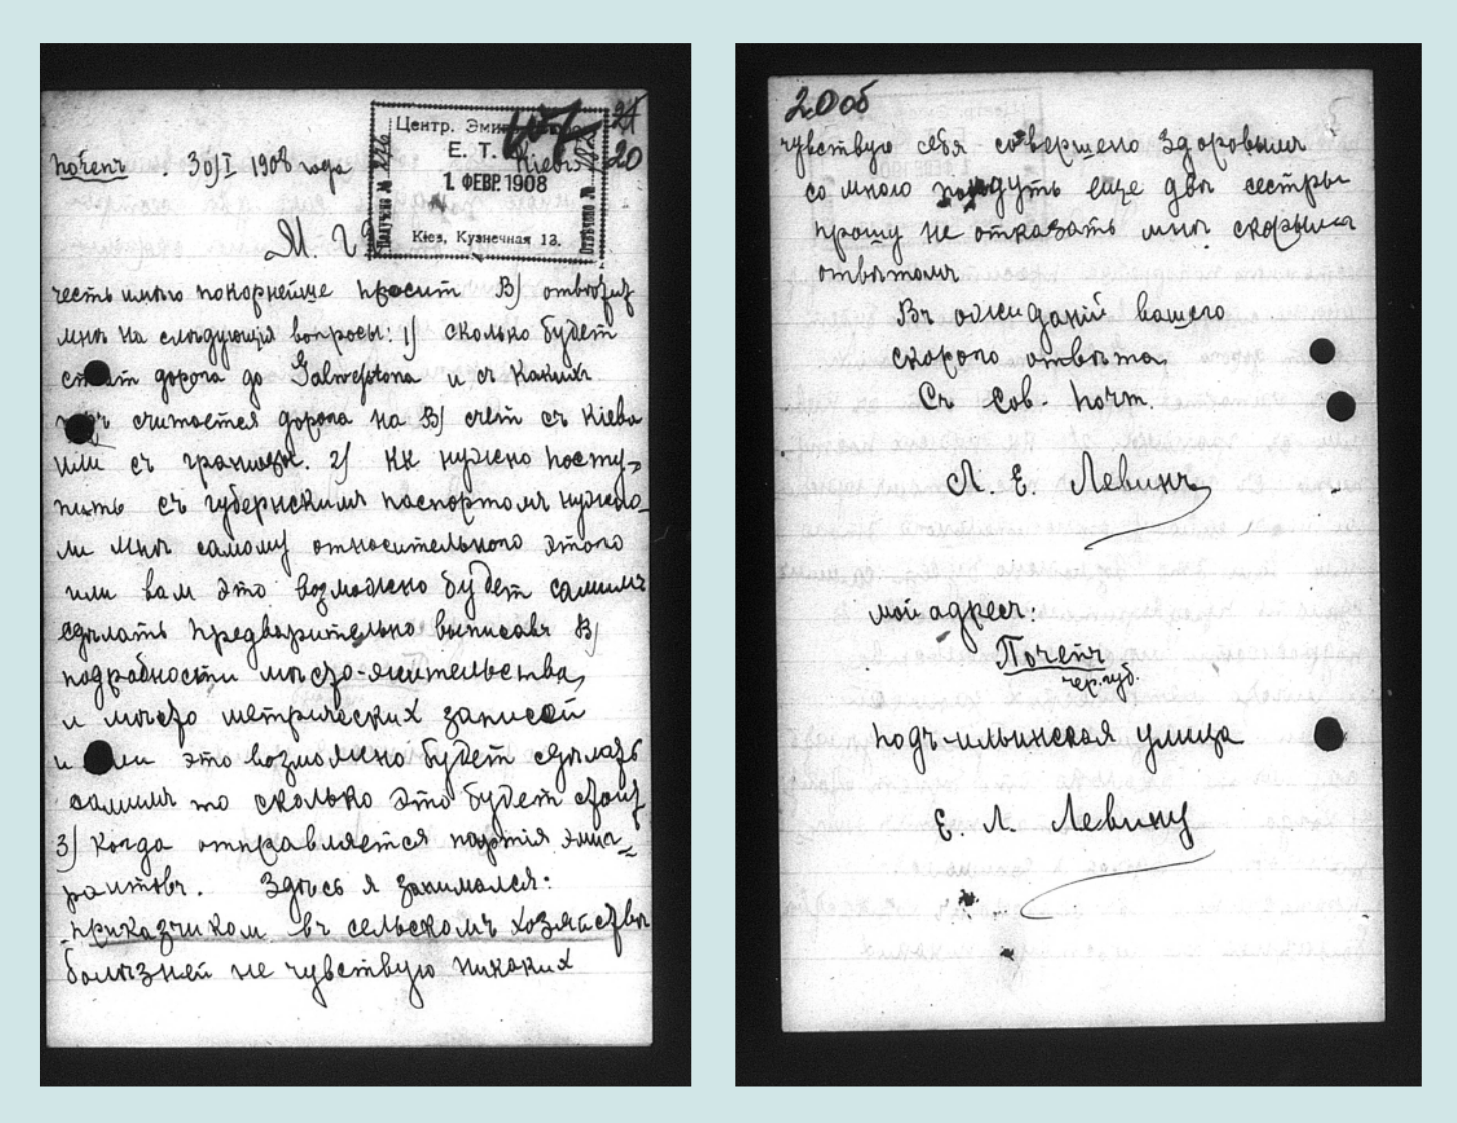 Почепъ. 30/I 1908 года
Центр. Эмигр.
Е. Т. О.
Кіевъ
1. ФЕВР. 1908
Получено №
Отвѣчено №
Кіев, Кузнечная 13.
21
20
М. Г.
честь имѣю покорнейше просит В) отвѣтит
мнѣ на слѣдующія вопросы: 1) сколько будет
стоит дорога до Galwestona и съ какихъ
считается дорога на В) счет съ Кіева
или съ границы. 2) как нужно посту-
пить съ губернскимъ паспортомъ нужно
ли мнѣ самому относительного этого
или вам это возможно будет самимъ
сдѣлать предварительно выписавъ В)
подробности мѣсто-жительства,
и мѣсто метрических записей
и если это возможно будет сдѣлать
самимъ то сколько это будет стоит
3) Когда отправляется партія эмиг-
рантовъ. Здѣсь я занимался:
приказчиком въ сельскомъ хозяйствѣ
болѣзней не чувствую никаких
20об
чувствую себя совершено здоровымъ
со мною поѣдуть еще двѣ сестры
прошу не отказать мнѣ скорымъ
отвѣтомъ
Въ ожиданій вашего
скорого отвѣта
Съ Сов. почт.
Л. Е. Левинъ
мой адресъ:
Почепъ
чер. губ.
подъ-ильинская улица
Е. Л. Левину